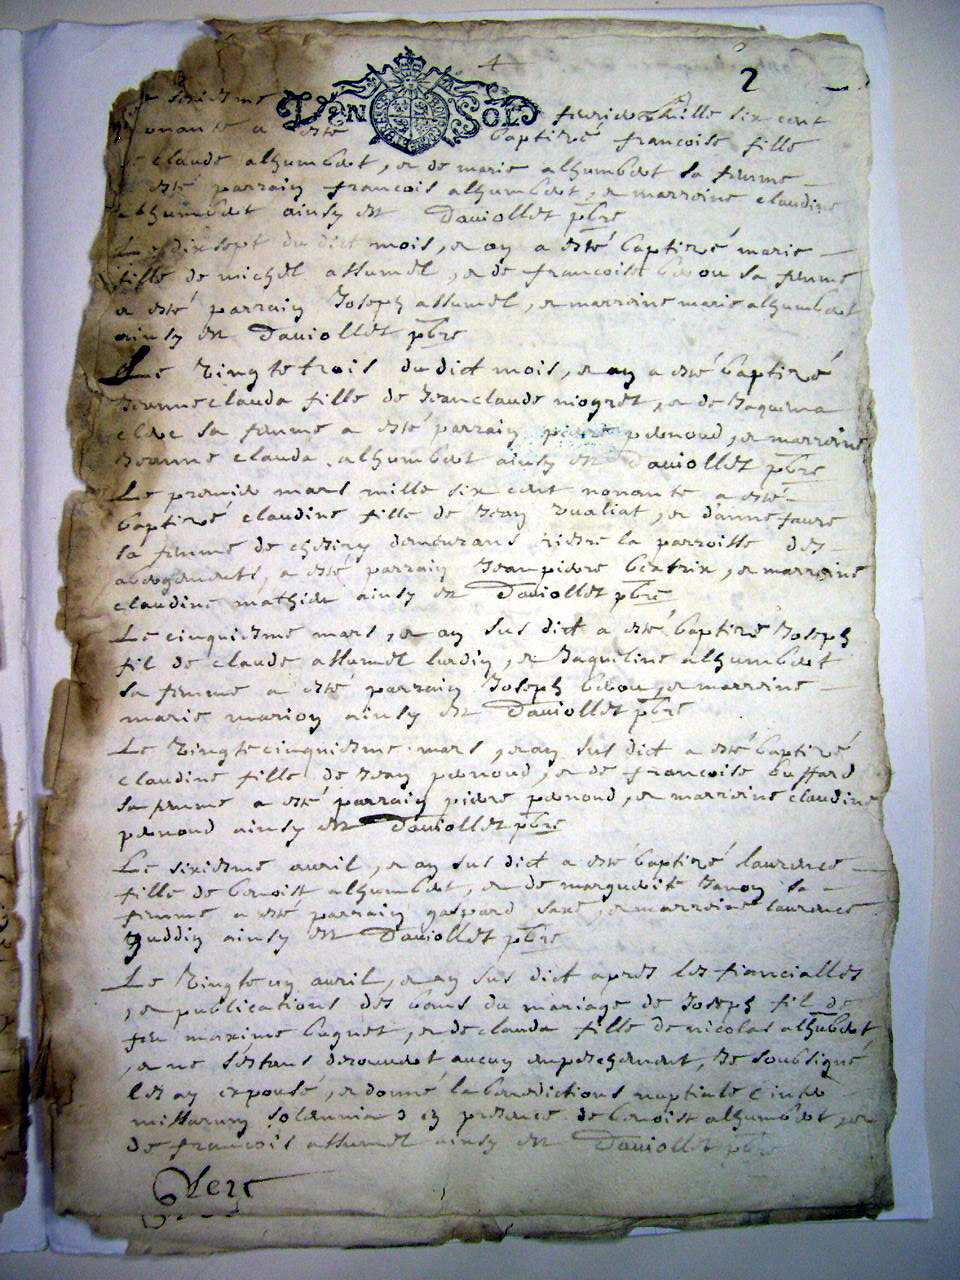 2
Le sixiesme febvrier mille six cent
nonante a esté baptizé francoise fille
de claude alhumbert, et de marie alhumbert sa femme
a esté parrain francois alhumbert, et marreine claudine
alhumbert ainsy est Daviollet pbre
Le dixsept du dict mois, et an a esté baptizé marie
fille de michel assumel, et de francoise bevou sa femme
a esté parrain Joseph assumel, et marreine marie alhumbert
ainsy est Daviollet pbre
Le vingtetrois du dict mois, et an a esté baptizé
Jeanneclauda fille de Jeanclaude niogret, et de Jaquema
clerc sa femme a esté parrain pierre pernoud, et marreine
Jeanne clauda alhumbert ainsy est Daviollet pbre
Le premier mars mille six cent nonante a esté
baptizé claudine fille de Jean vualiat, et d'anne favre
sa femme de chesiry demeurans riere la parroisse des
abergements, a esté parrain Jeanpierre beatrix, et marreine
claudine mathieu ainsy est Daviollet pbre
Le cinquiesme mars, et an sus dict a esté baptizé Joseph
fil de claude assumel lurdin, et Jaqueline alhumbert
sa femme a esté parrain Joseph bevou, et marreine
marie marion ainsy est Daviollet pbre
Le vingtecinquiesme mars, et an sus dict a esté baptizé
claudine fille de Jean pernoud, et de francoise buffard
sa femme a esté parrain pierre pernoud, et marreine claudine
pernoud ainsy est Daviollet pbre
Le sixiesme avril, et an sus dict a esté baptizé laurence
fille de benoist alhumbert, et de marguerite Savoy sa
femme a esté parrain gaspard saxe, et marreine laurence
ainsy est Daviollet pbre
Le vingteun avril, et an sus dict apres les fiancialles
, et publications des bans du mariage de Joseph fil de
feu maxime buguet, et de clauda fille de nicolas alhumbert
, et ne sestans descouvert aucun empeschement, Je soubsigné
les ay expousé, et donné la benedictions nuptiale
missarum solemnia en presence de benoist alhumbert, et
de francois assumel ainsy est Daviollet pbre